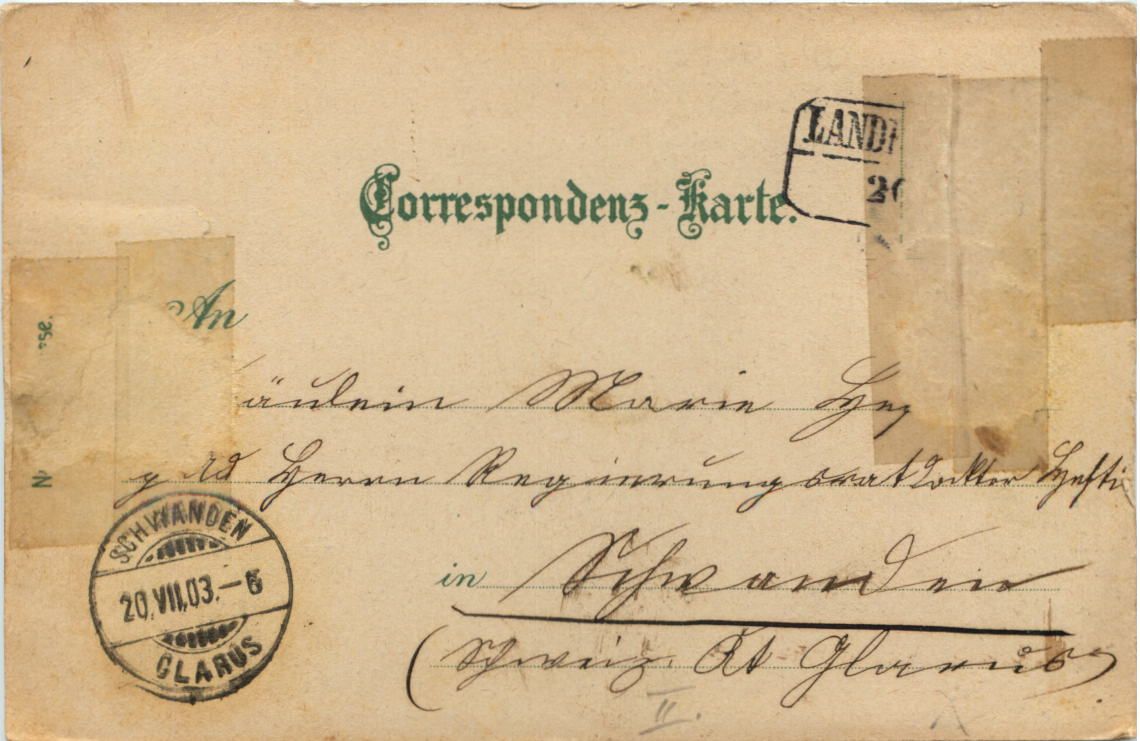 LAND
20
Correspondenz-Karte.
An
äulein Marie Hef
Herrn Regierungsrat Docktor Hefti
in Schwanden
(Schweiz. Kt Glarus)
II.
SCHWANDEN
20.VII.03.-6
GLARUS